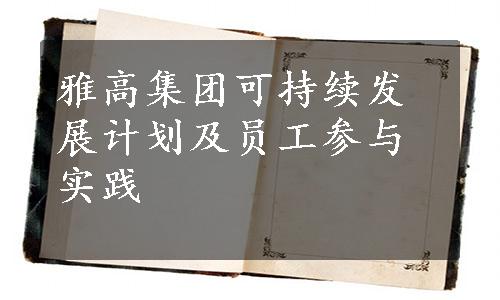 雅高集团可持续发
展计划及员工参与
实践